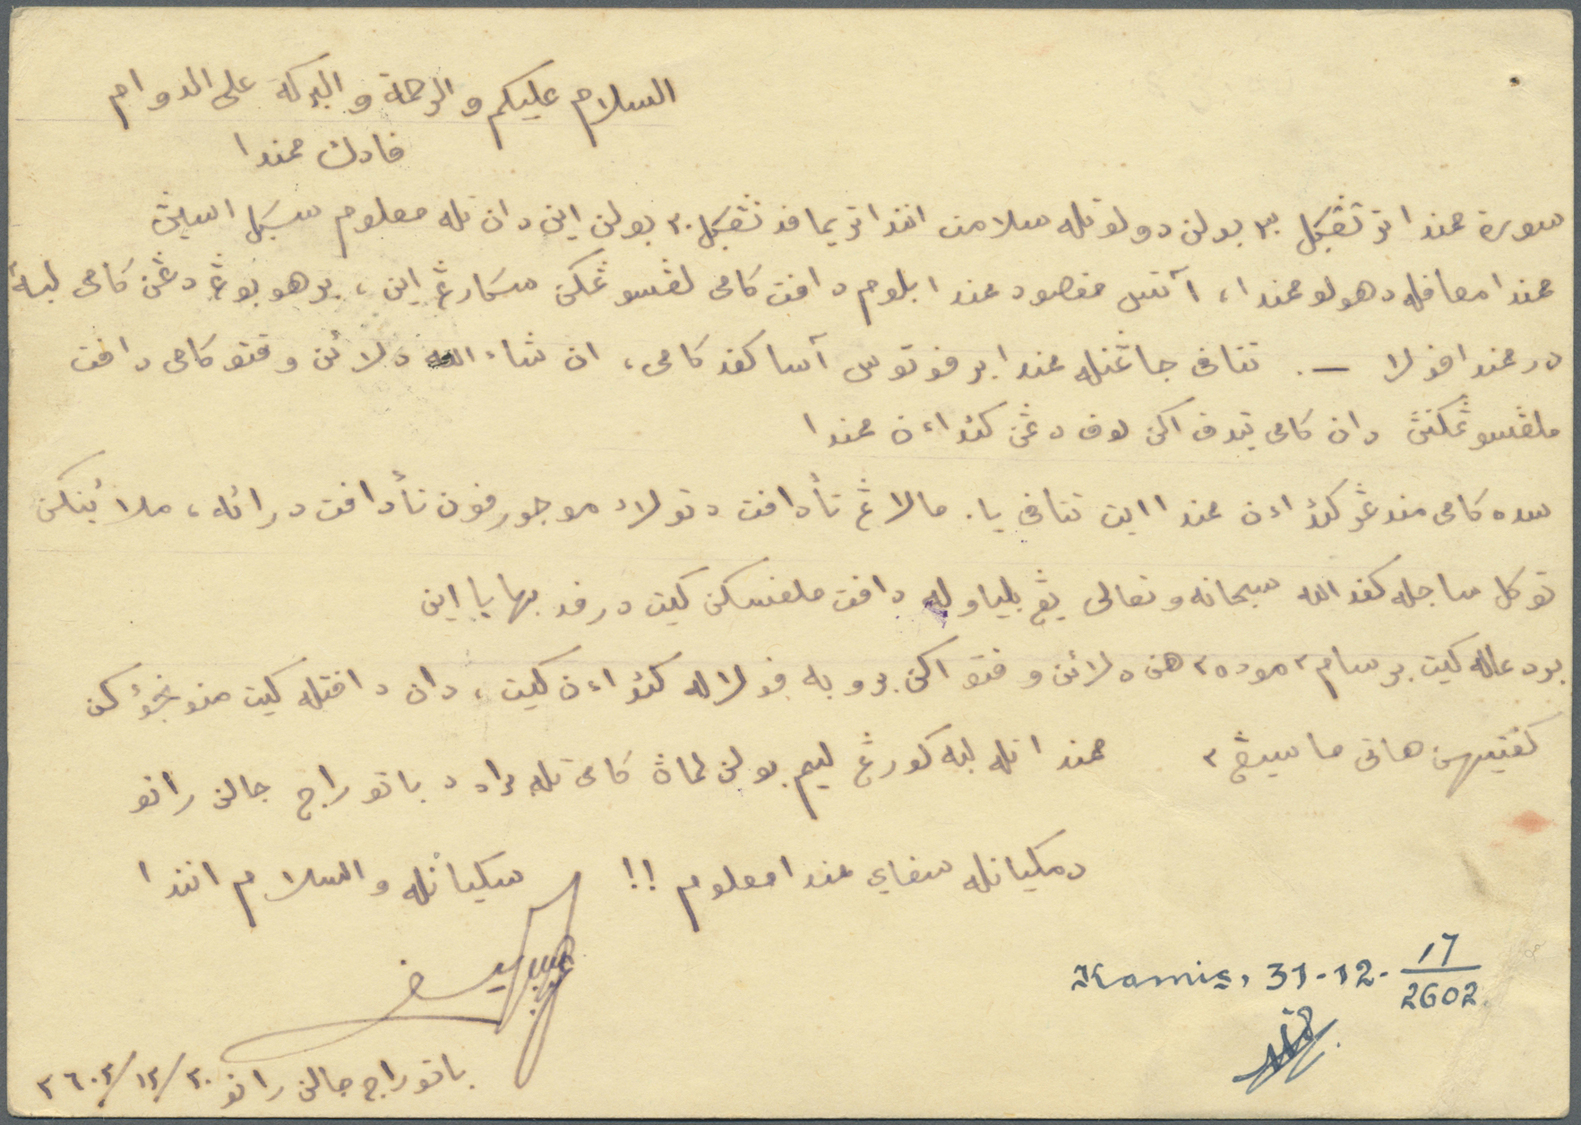 السلام عليكم والرحمة والبركة على الدوام
فادك ممندا
سورة ممندا ترتڠݢل ٣ بولن دولو تله سلامت انندا تريما فد تڠݢل ٢٠ بولن اين دان تله معلوم سݢل اسيڽ
ممندا معافله دهولو ممندا، آتس مقصود ممندا بلوم دافت كامي لڠسوڠكن سكارڠ اين، برهوبوڠ دڠن كامي لبه٢
در ممندا فولا —. تتافي جاڠنله ممندا برفوتوس آسا كفد كامي، ان شاء الله دلائن وقتو كامي دافت
ملڠسوڠكنڽ دان كامي تيدق اكن لوف دڠن كئداءن ممندا
سده كامي مندڠر كئداءن ممندا ايت تتافي يا. مالڠ تأدافت دتولق موجورفون تأدافت درائه، ملائينكن
توكل ساجله كفد الله سبحانه وتعالى يڠ بلياوله دافت ملفسكن كيت درفد بهايا اين
بردعاله كيت برسام٢ موده٢هن دلائن وقتو اكن بروبه فولاله كئداءن كيت، دان دافتله كيت منونجوءكن
كفتيهن هاتي ماسيڠ٢ ممندا تله لبه كورڠ ليم بولن لماڽ كامي تله براد د باتوراج جالن رانو
دمكيانله سفاي ممندا معلوم !! سكيانله والسلام انندا
باتوراج جالن رانو ٢٠/١٢/٢٦٠٢
Kamis, 31-12-17/2602